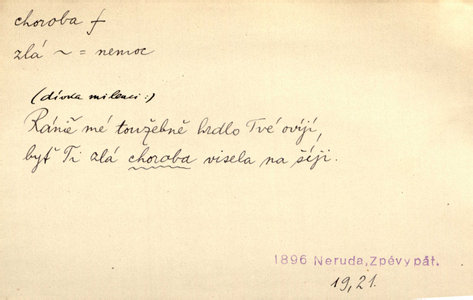 choroba f
zlá ~ = nemoc
(dívka milenci:)
Rámě mé toužebně hrdlo Tvé ovíjí,
byť Ti zlá choroba visela na šíji.
1896 Neruda, Zpěvy pát.
19, 21.